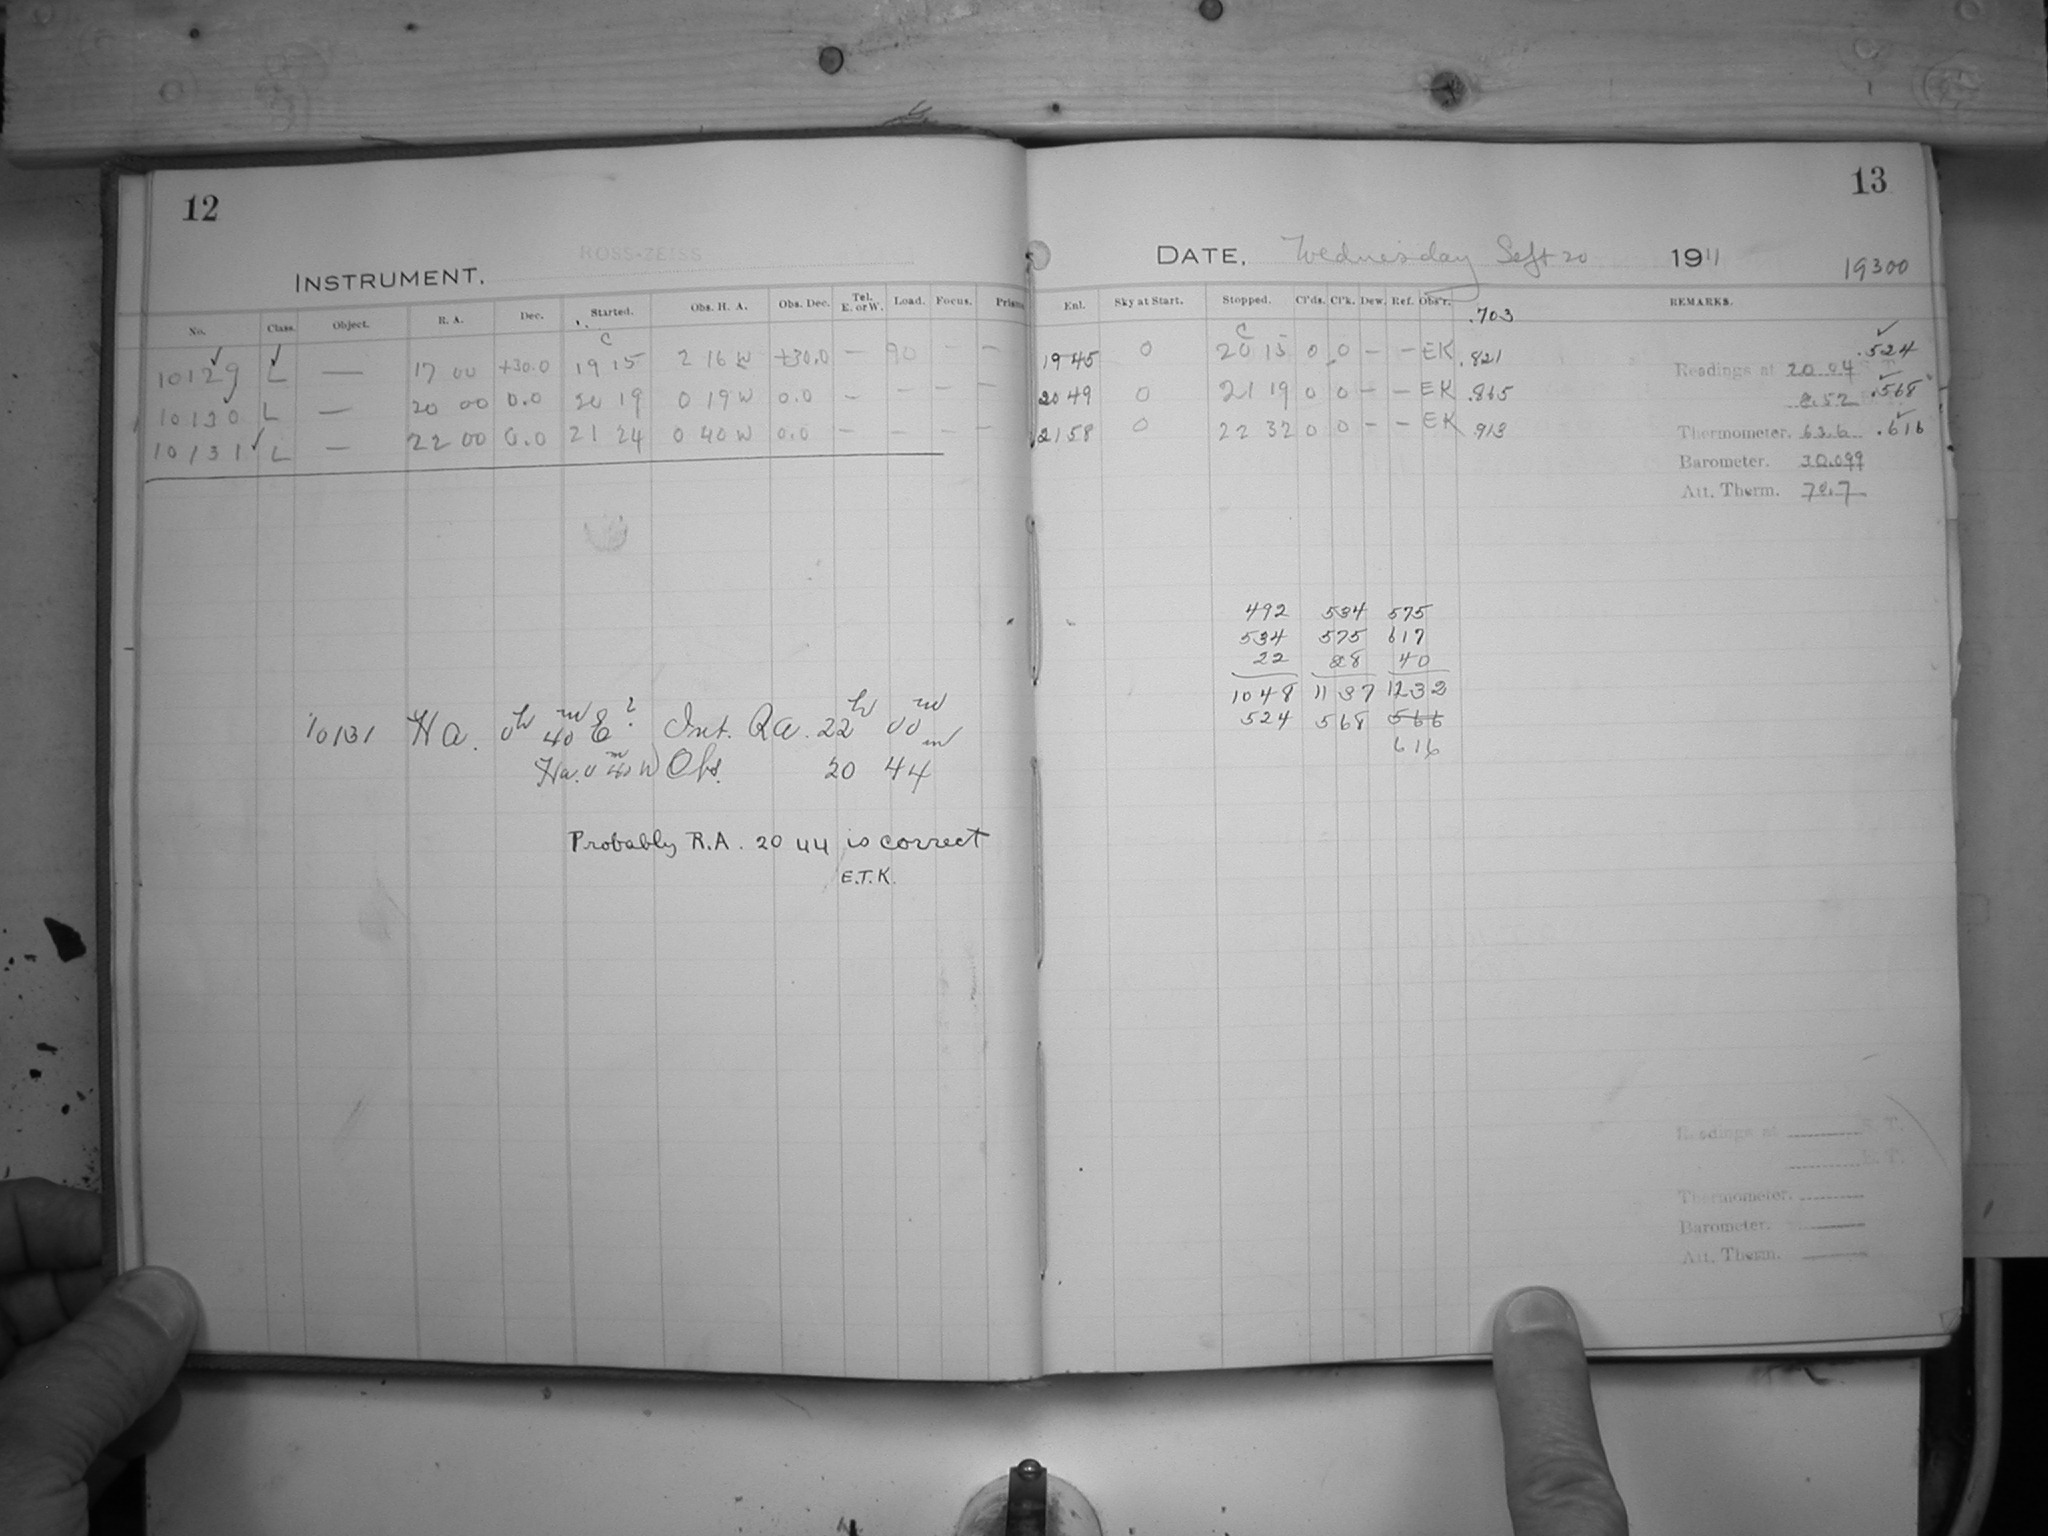 12
ROSS-ZEISS
INSTRUMENT.
No. Class. Object. R. A. Dec. Started. Obs. H. A. Obs. Dec. Tel. E. or W. Load. Focus.
C
10129 ✓ L ✓ — 17 00 +30.0 19 15 2 16 W +30.0 — 90 — —
10130 L — 20 00 0.0 20 19 0 19 W 0.0 — — — —
10131 ✓ L — 22 00 0.0 21 24 0 40 W 0.0 — — — —
10131 Ha. 0h 40m E? Int. Ra. 22h 00m
Ha. 0 40m W Obs. 20 44m
Probably R.A. 20 44 is correct
E.T.K.
13
DATE, Wednesday Sept 20 1911
19300
Enl. Sky at Start. Stopped. Cl'ds. Cl'k. Dew. Ref. Obs'r. REMARKS.
.703
C
19 45 0 20 15 0 0 — — EK .821
20 49 0 21 19 0 0 — — EK .865
21 58 0 22 32 0 0 — — EK .913
✓ .524
Readings at 20.04 S. T.
8.52 ✓ .568
Thermometer. 63.6 ✓ .616
Barometer. 30.099
Att. Therm. 70.7
492 534 575
534 575 617
22 28 40
1048 1137 1232
524 568 566
616
Readings at S. T.
E. T.
Thermometer.
Barometer.
Att. Therm.